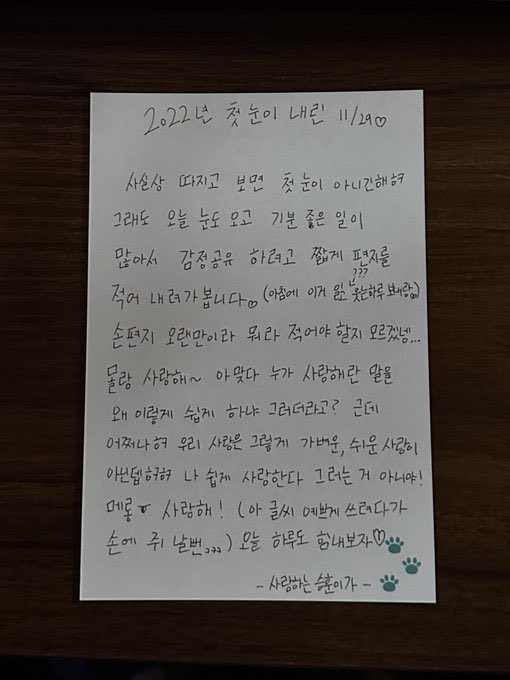 2022년 첫눈이 내린 11/29♡
사실상 따지고 보면 첫눈이 아니긴해ㅎㅎ
그래도 오늘 눈도 오고 기분 좋은 일이
많아서 감정공유 하려고 짧게 편지를
???
적어 내려가봅니다♡ (아침에 이거 읽고 웃는하루 보내랑♡)
손편지 오랜만이라 뭐라 적어야 할지 모르겠넹...
몰랑 사랑해~ 아맞다 누가 사랑해란 말을
왜 이렇게 쉽게 하냐 그러더라고? 근데
어쩌나ㅎㅎ 우리 사랑은 그렇게 가벼운, 쉬운 사랑이
아닌뎁ㅎㅎㅎ 나 쉽게 사랑한다 그러는 거 아니야!
메롱 사랑해! (아 글씨 예쁘게 쓰려다가
손에 쥐 날뻔,,,) 오늘 하루도 힘내보자♡
- 사랑하는 승훈이가 -